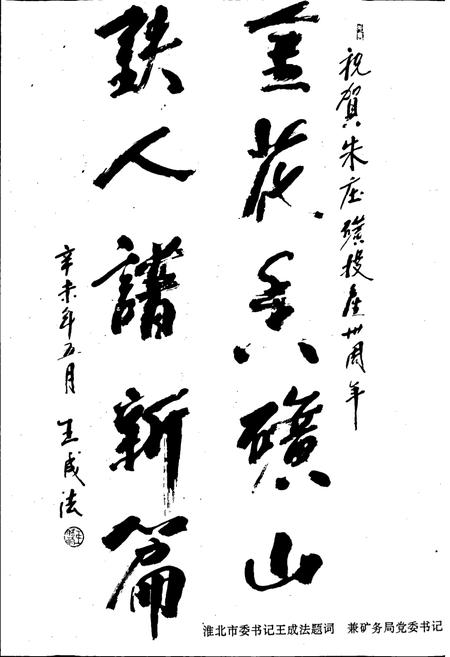 祝賀朱庄礦投產卅周年
花香礦山
鉄人譜新篇
辛未年五月 王成法
淮北市委书记王成法题词 兼矿务局党委书记